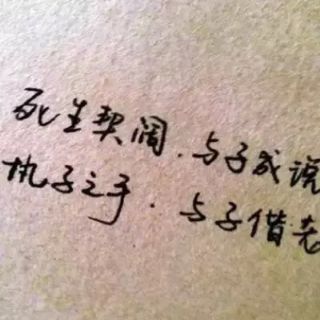 死生契阔.与子成说
执子之手.与子偕老